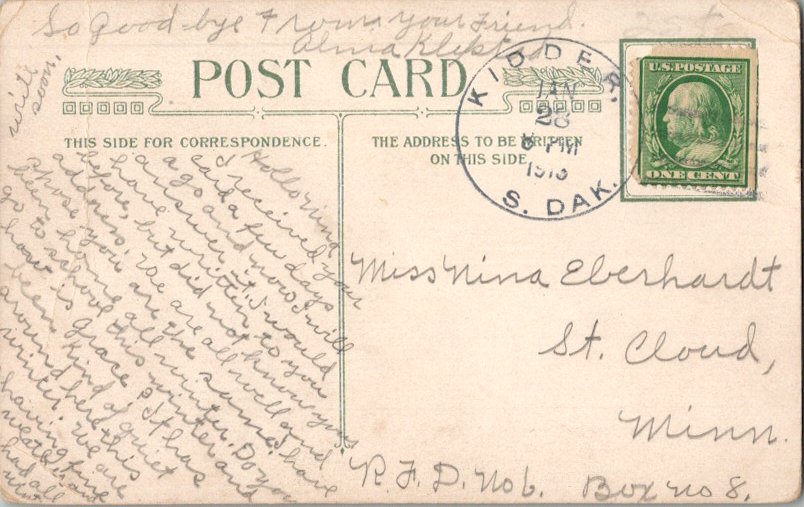 So good-bye From your Friend.
Alma Klepst
write
soon.
POST CARD
THIS SIDE FOR CORRESPONDENCE.
THE ADDRESS TO BE WRITTEN
ON THIS SIDE
KIDDER,
JAN
28
6 PM
1913
S. DAK.
U.S. POSTAGE
ONE CENT
Hello Nina
I received your
card a few days
ago and now I will
answer it. I would
have written to you
before, but did not know your
address. We are all well and
hope you are the same. I have
been home all winter. Do you
go to school this winter and
how is Grace? It has
been kind of quiet
around here this
winter. We are
having fine
weather and
had all
Miss Nina Eberhardt
St. Cloud,
Minn.
R.F.D. No 6. Box no 8.